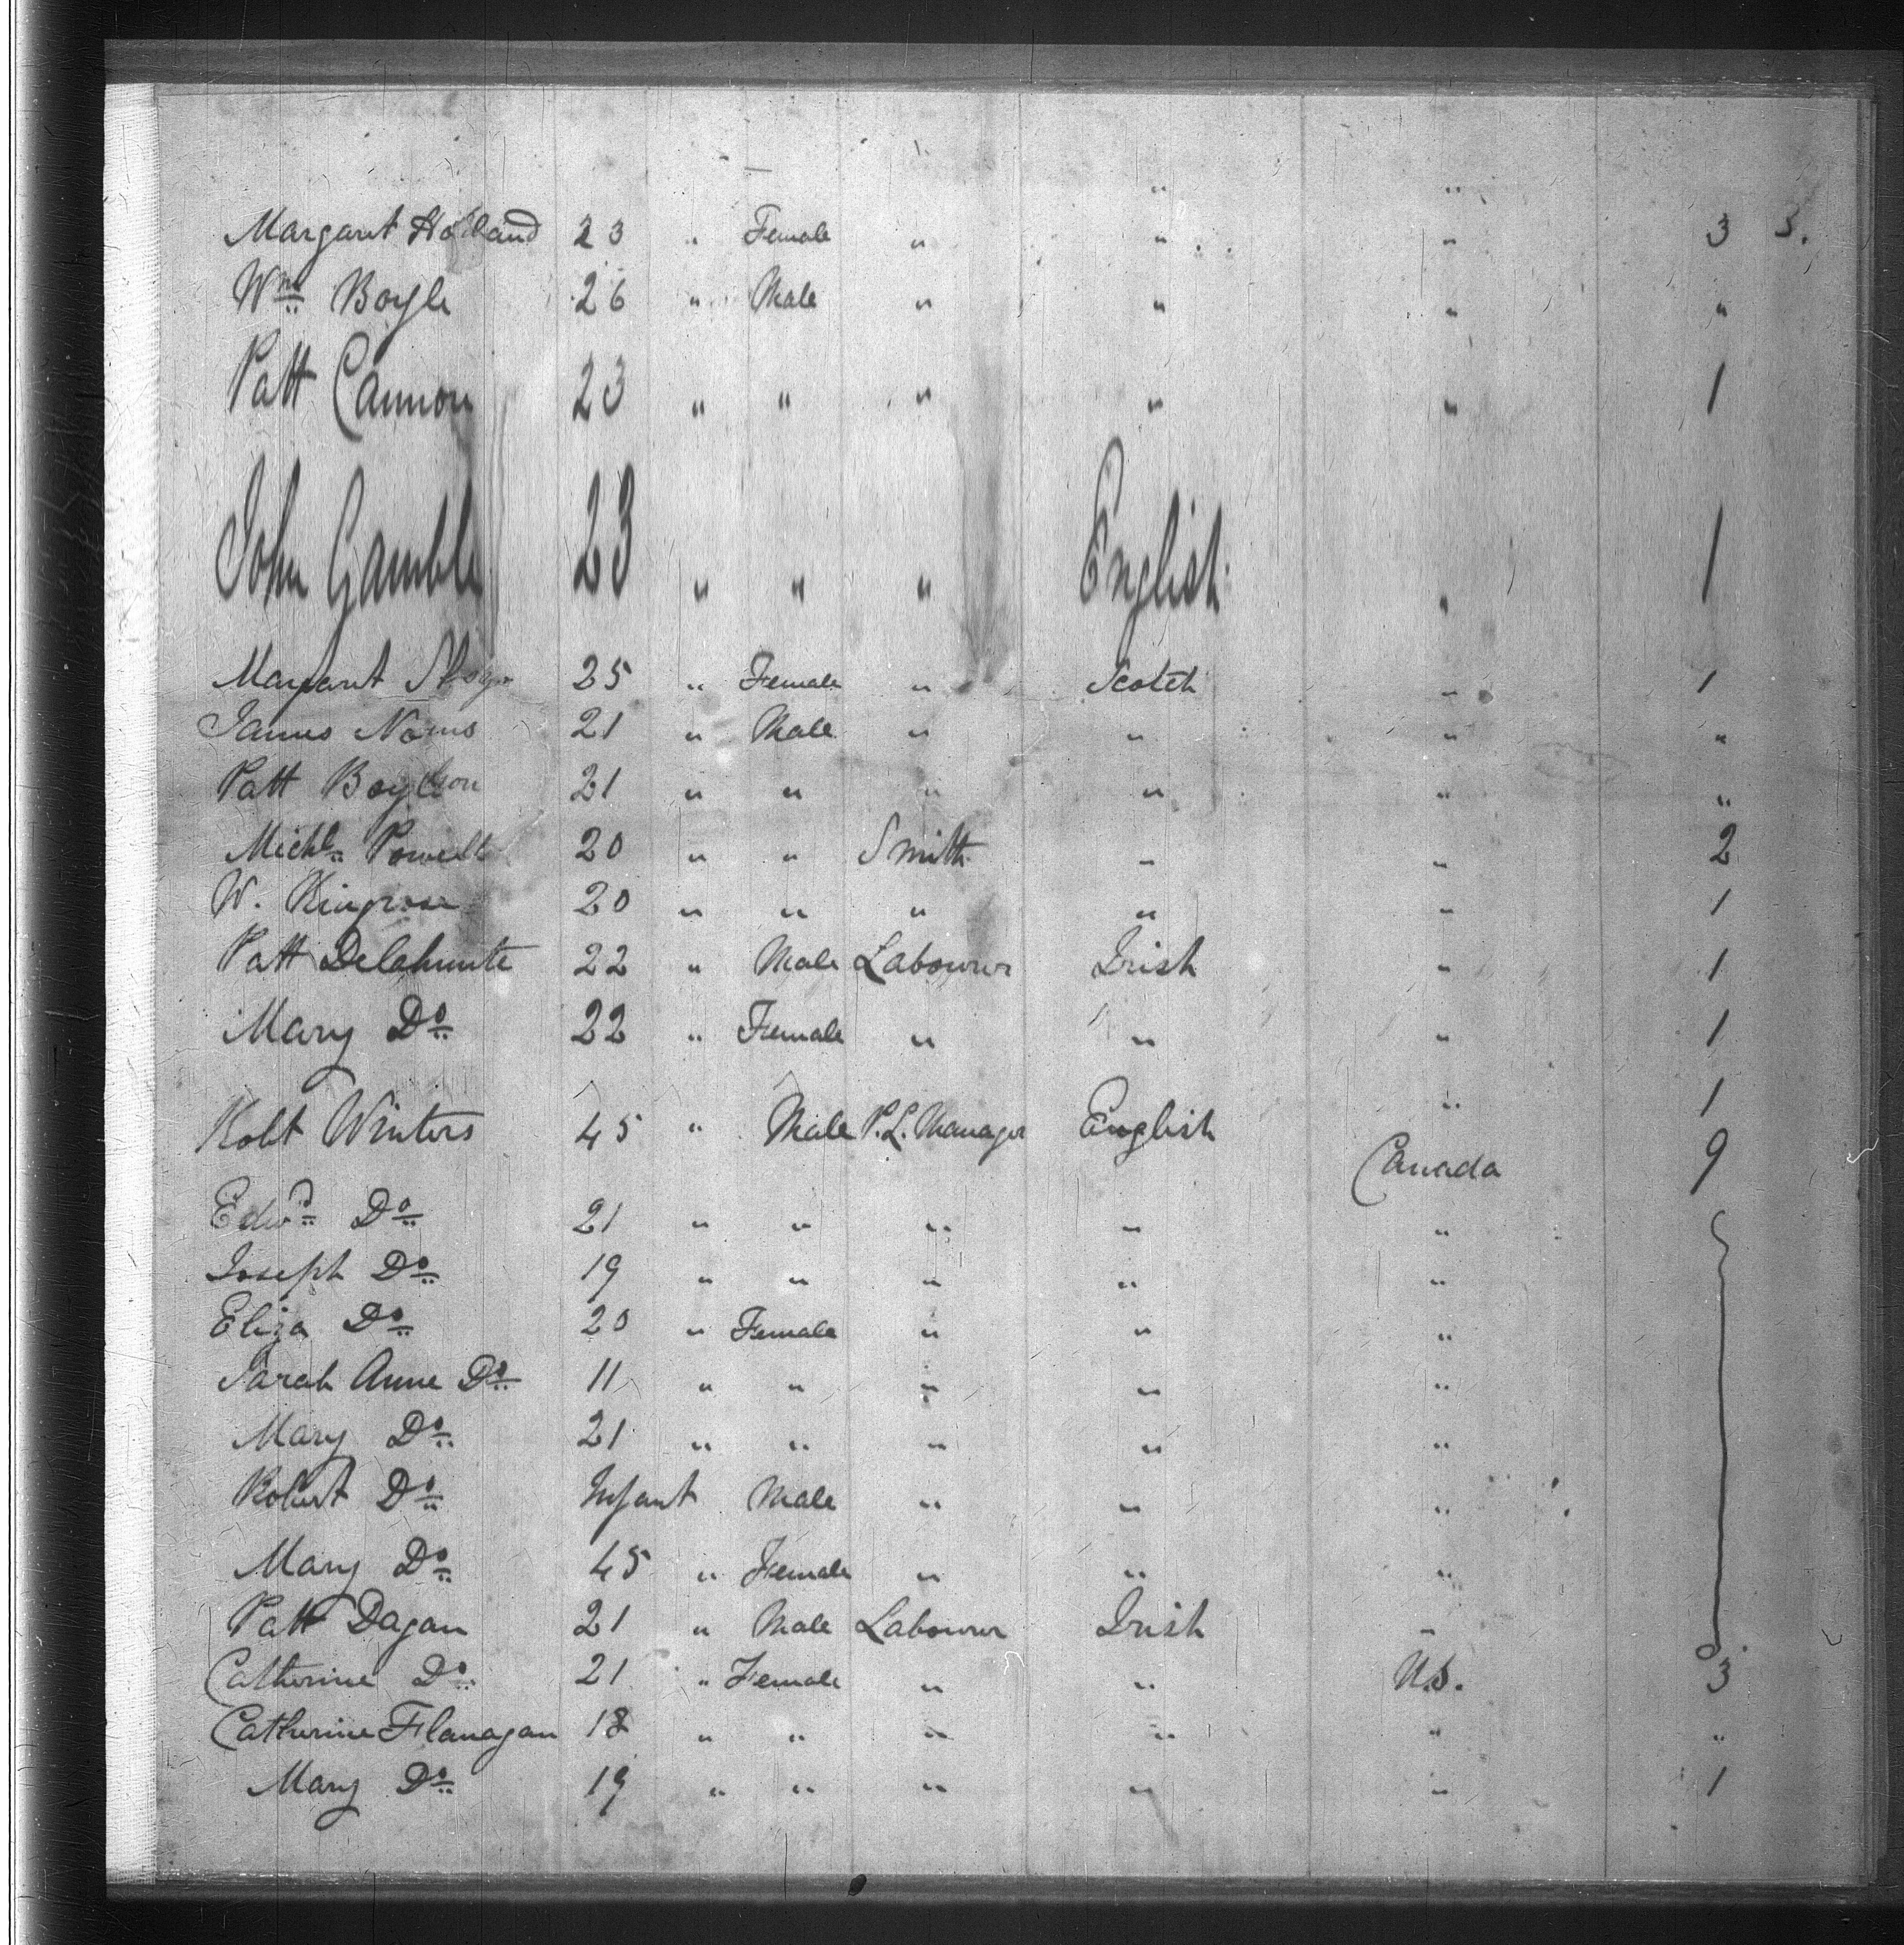 " "
Margaret Holland 23 " Female " " " 3 3.
Wm Boyle 26 " Male " " " "
Patt Cannon 23 " " " " " 1
John Gamble 23 " " " English " 1
Margaret 25 " Female " Scotch " 1
James 21 " Male " " " "
Patt 21 " " " " " "
Michl Powell 20 " " Smith " " 2
W. Kingrose 20 " " " " " 1
Patt Delahunte 22 " Male Labourer Irish " 1
Mary Do 22 " Female " " " 1
Robt Winters 45 " Male P.L. Manager English " 1
Canada 9
Edwd Do 21 " " " " "
Joseph Do 19 " " " " "
Eliza Do 20 " Female " " "
Sarah Anne Do 11 " " " " "
Mary Do 21 " " " " "
Robert Do Infant Male " " "
Mary Do 45 " Female " " "
Patt Dagan 21 " Male Labourer Irish "
Catherine Do 21 " Female " " U.S. 3
Catherine Flanagan 18 " " " " " "
Mary Do 19 " " " " " 1